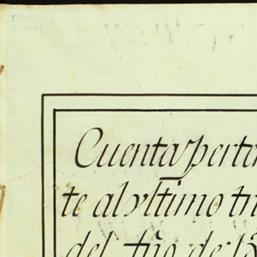 Cuenta perte
te al vltimo tr
del Año de 18